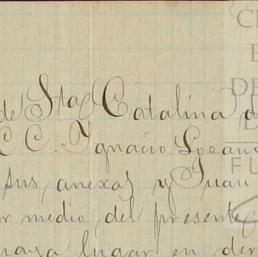 de Sta Catalina d
C C. Ygnacio Lozano
sus anexas y Juan
r medio del presente
haya lugar en der